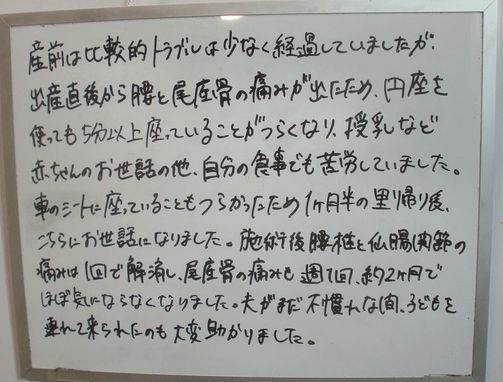 産前は比較的トラブルは少なく経過していましたが、
出産直後から腰と尾座骨の痛みが出たため、円座を
使っても5分以上座っていることがつらくなり、授乳など
赤ちゃんのお世話の他、自分の食事でも苦労していました。
車のシートに座っていることもつらかったため1ヶ月半の里帰り後、
こちらにお世話になりました。施術後腰椎と仙腸関節の
痛みは1回で解消し、尾座骨の痛みも週1回、約2ヶ月で
ほぼ気にならなくなりました。夫がまだ不慣れな間、子どもを
連れて来られたのも大変助かりました。